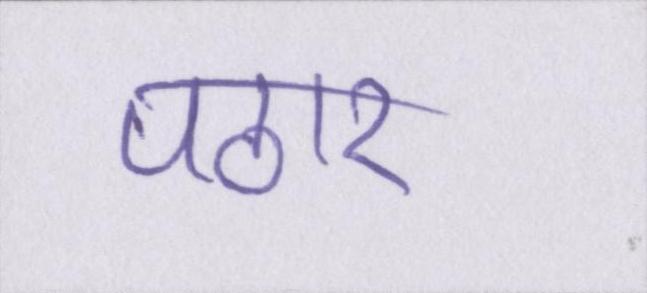 पठार